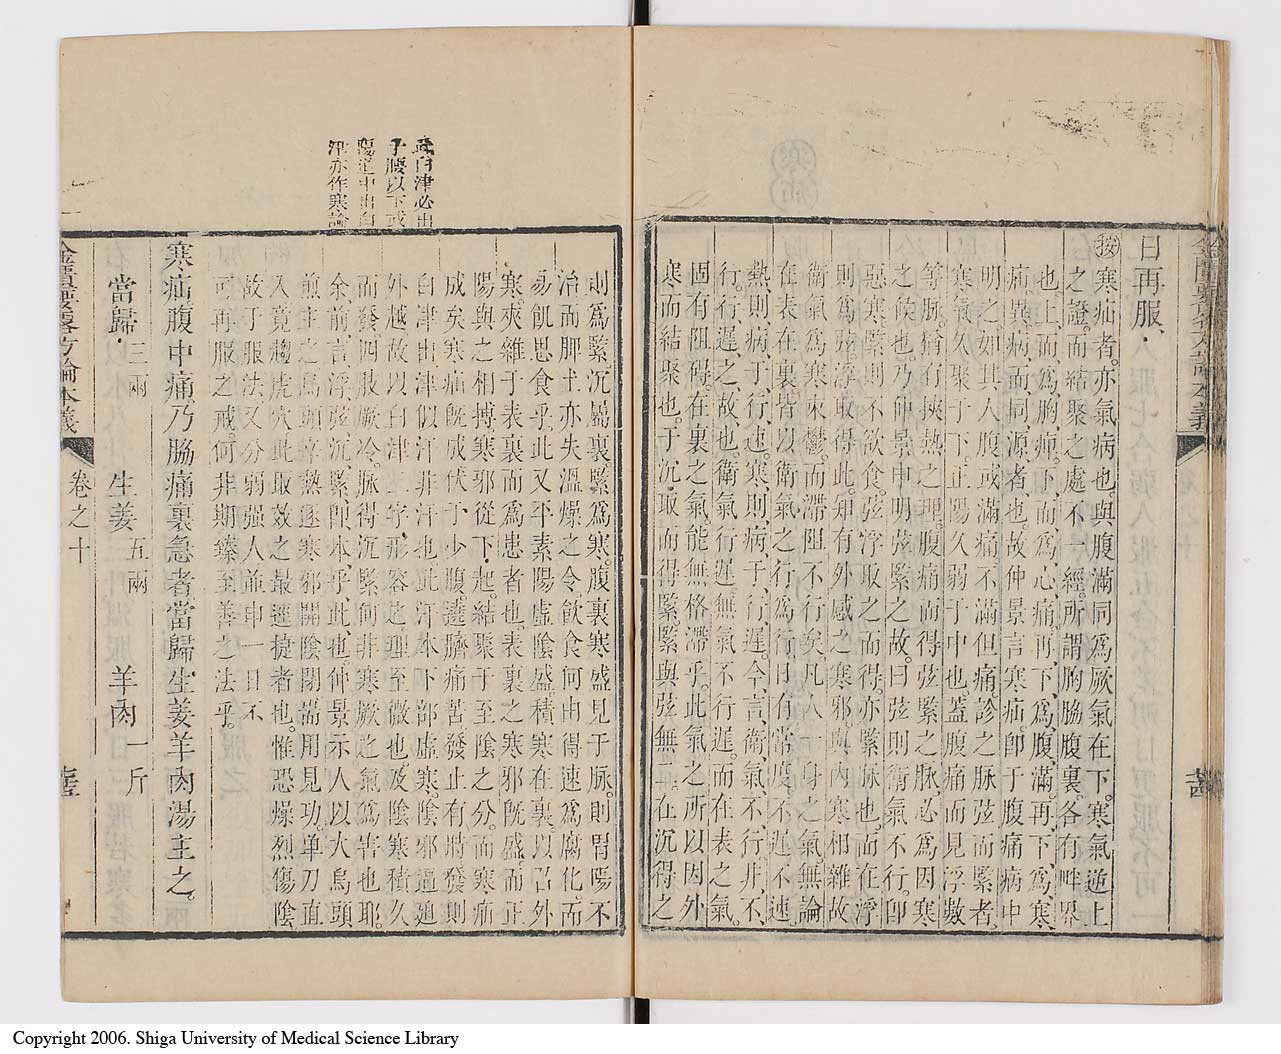 日再服
按寒疝者亦氣病也與腹滿同爲厥氣在下寒氣逆上
之證而結聚之處不一經所謂胸脇腹裏各有畔界
也上而爲胸痺下而爲心痛再下爲腹滿再下爲寒
疝異病而同源者也故仲景言寒疝卽于腹痛病中
明之如其人腹或滿痛不滿但痛診之脉弦而緊者
寒氣久聚于下正陽久弱于中也蓋腹痛而見浮數
等脉猶有挾熱之理腹痛而得弦緊之脉必爲因寒
之候也乃仲景申明弦緊之故曰弦則衛氣不行卽
惡寒緊則不欲食弦浮取之而得亦緊脉也而在浮
則爲弦浮取得此知有外感之寒邪與內寒相雜故
衛氣爲寒束鬱而滯阻不行矣凡人一身之氣無論
在表在裏皆以衛氣之行爲行日有常度不遲不速
熱則病于行速寒則病于行遲今言衛氣不行非不
行行遲之故也衛氣行遲無氣不行遲而在表之氣
固有阻碍在裏之氣能無格滯乎此氣之所以因外
寒而結聚也于沉取而得緊緊與弦無二在沉得之
則爲緊沉屬裏緊爲寒腹裏寒盛見于脉則胃陽不
治而脾土亦失溫燥之令飲食何由得速爲腐化而
易飢思食乎此又平素陽虛陰盛積寒在裏以召外
寒夾雜于表裏而爲患者也表裏之寒邪旣盛而正
陽與之相搏寒邪從下起結聚于至陰之分而寒疝
成矣寒疝旣成伏于少腹遶臍痛苦發止有時發則
白津出津似汗非汗也此汗本下部虛寒陰邪逼廹
外越故以白津二字形容之理至微也及陰寒積久
而發四肢厥冷脉得沉緊何非寒厥之氣爲害也耶
余前言浮弦沉緊卽本乎此也仲景示人以大烏頭
煎主之烏頭辛熱逐寒邪開陰閉耑用見功单刀直
入竟趨虎穴此取效之最逕捷者也惟恐燥烈傷陰
故于服法又分弱强人並申一日不
可再服之戒何非期臻至善之法乎
寒疝腹中痛乃脇痛裏急者當歸生姜羊肉湯主之
當歸三兩 生姜五兩 羊肉一斤
白津必出
于腰以下或
腰之中出自
汗亦作寒論
金匱要畧方論本義
卷之十